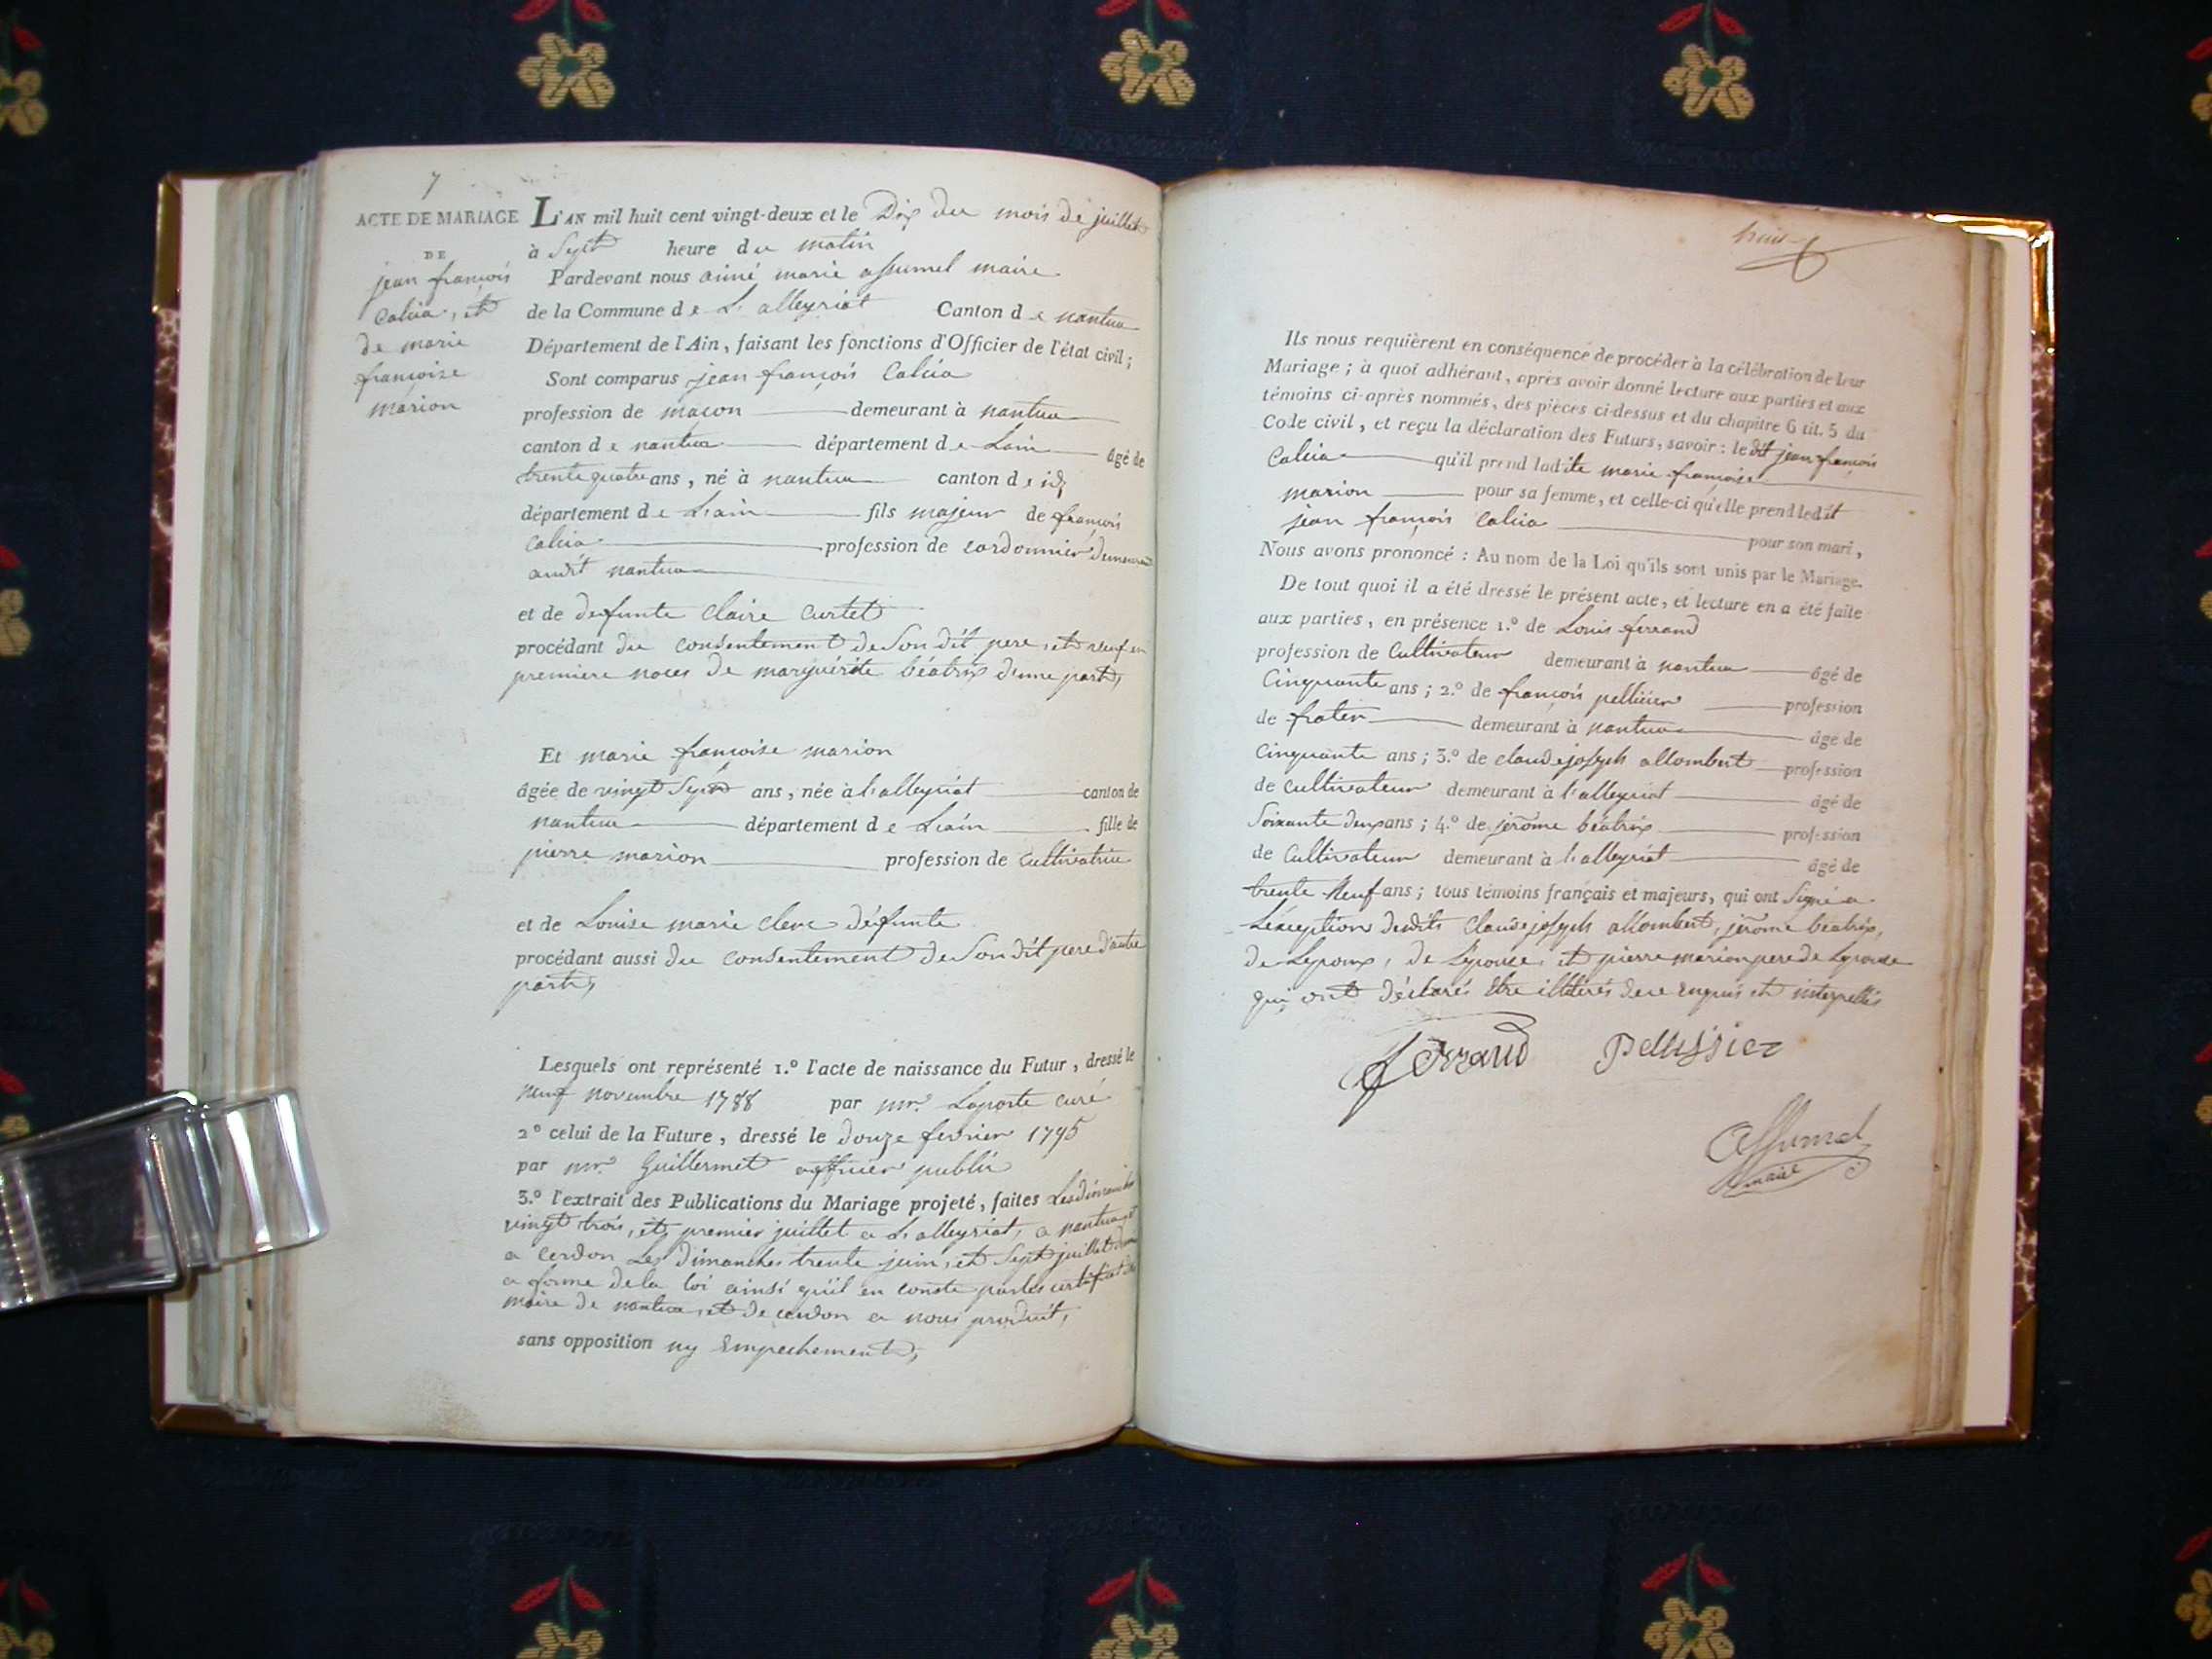 7
ACTE DE MARIAGE
DE
jean françois
Caluia, et
de marie
françoise
marion
L'AN mil huit cent vingt-deux et le Dix du mois de juillet
à Sept heure du matin
Pardevant nous aimé marie assumel maire
de la Commune de L'alleyriat Canton de nantua
Département de l'Ain, faisant les fonctions d'Officier de l'état civil;
Sont comparus jean françois Caluia
profession de maçon demeurant à nantua
canton de nantua département de Lain âgé de
trente quatre ans, né à nantua canton de id
département de L'ain fils majeur de françois
caluia profession de cordonnier demeurant
audit nantua
et de defunte claire curtet
procédant du consentement de Son dit pere, et veuf en
premiere noces de marguérite béatrix d'une part,
Et marie françoise marion
âgée de vingt Sept ans, née à l'alleyriat canton de
nantua département de L'ain fille de
pierre marion profession de cultivatrice
et de Louise marie clerc défunte
procédant aussi du consentement de Son dit pere d'autre
part,
Lesquels ont représenté 1.º l'acte de naissance du Futur, dressé le
neuf novembre 1788 par mr. Laporte curé
2º celui de la Future, dressé le douze fevrier 1795
par mr. Guillermet officier public
3.º l'extrait des Publications du Mariage projeté, faites Les dimanches
vingt trois, et premier juillet a L'alleyriat, a nantua et
a cerdon Les Dimanches trente juin, et Sept juillet
a forme de la loi ainsi qu'il en conste par les certificat du
maire de nantua, et de cerdon a nous produit,
sans opposition ny Empechement,
huit
Ils nous requièrent en conséquence de procéder à la célébration de leur
Mariage; à quoi adhérant, après avoir donné lecture aux parties et aux
témoins ci-après nommés, des pièces ci-dessus et du chapitre 6 tit. 5 du
Code civil, et reçu la déclaration des Futurs, savoir: ledit jean françois
Caluia qu'il prend ladite marie françoise
marion pour sa femme, et celle-ci qu'elle prend ledit
jean françois caluia pour son mari,
Nous avons prononcé: Au nom de la Loi qu'ils sont unis par le Mariage.
De tout quoi il a été dressé le présent acte, et lecture en a été faite
aux parties, en présence 1.º de Louis ferrand
profession de Cultivateur demeurant à nantua âgé de
Cinquante ans; 2.º de françois pellissier profession
de frater demeurant à nantua âgé de
Cinquante ans; 3.º de claude joseph allombert profession
de cultivateur demeurant à l'alleyriat âgé de
Soixante deux ans; 4.º de jerôme béatrix profession
de Cultivateur demeurant à l'alleyriat âgé de
trente Neuf ans; tous témoins français et majeurs, qui ont Signé a
L'exception desdits claude joseph allombert, jrôme béatrix,
de L'epoux, de L'epouse, et pierre marion pere de L'epouse
qui ont déclarés être illitérés de ce enquis et interpellés
ferrand Pellissier
assumel
maire